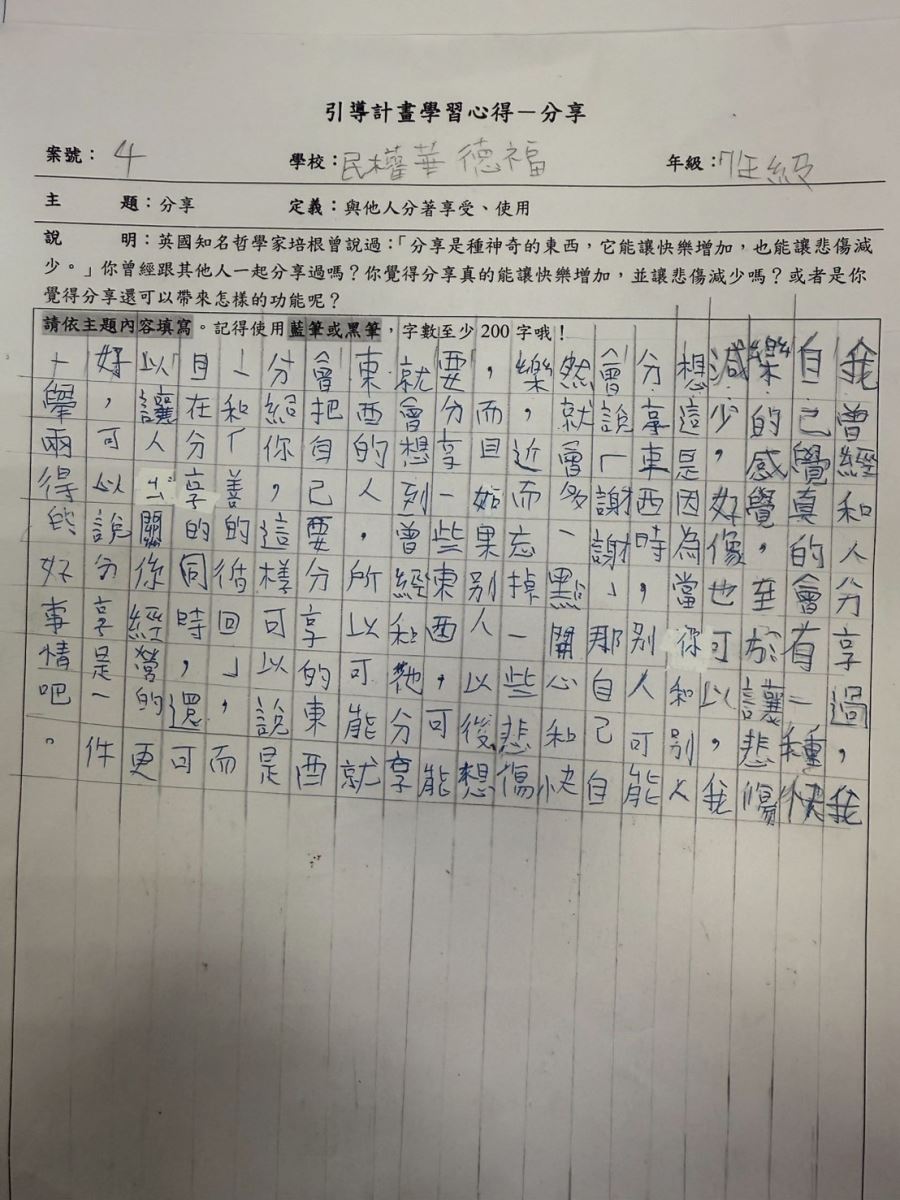 引導計畫學習心得－分享
案號：4 學校：民權華德福 年級：7年級
主 題：分享 定義：與他人分著享受、使用
說 明：英國知名哲學家培根曾說過：「分享是種神奇的東西，它能讓快樂增加，也能讓悲傷減
少。」你曾經跟其他人一起分享過嗎？你覺得分享真的能讓快樂增加，並讓悲傷減少嗎？或者是你
覺得分享還可以帶來怎樣的功能呢？
請依主題內容填寫。記得使用藍筆或黑筆，字數至少 200 字哦！
我曾經和人分享過，我
自己覺真的會有一種快
樂的感覺，至於讓悲傷
減少，好像也可以，我
想這是因為當你和別人
分享東西時，別人可能
會說「謝謝」，那自己自
然就會多一點關心和快
樂，近而忘掉一些悲傷
，而且如果別人以後想
要分享一些東西，可能
就會想到曾經和他分享
東西的人，所以可能就
會把自己要分享的東西
分給你，這樣可以說是
一和「善的循回」，而
且在分享的同時，還可
以讓人關係經營的更
好，可以說分享是一件
一舉兩得的好事情吧。